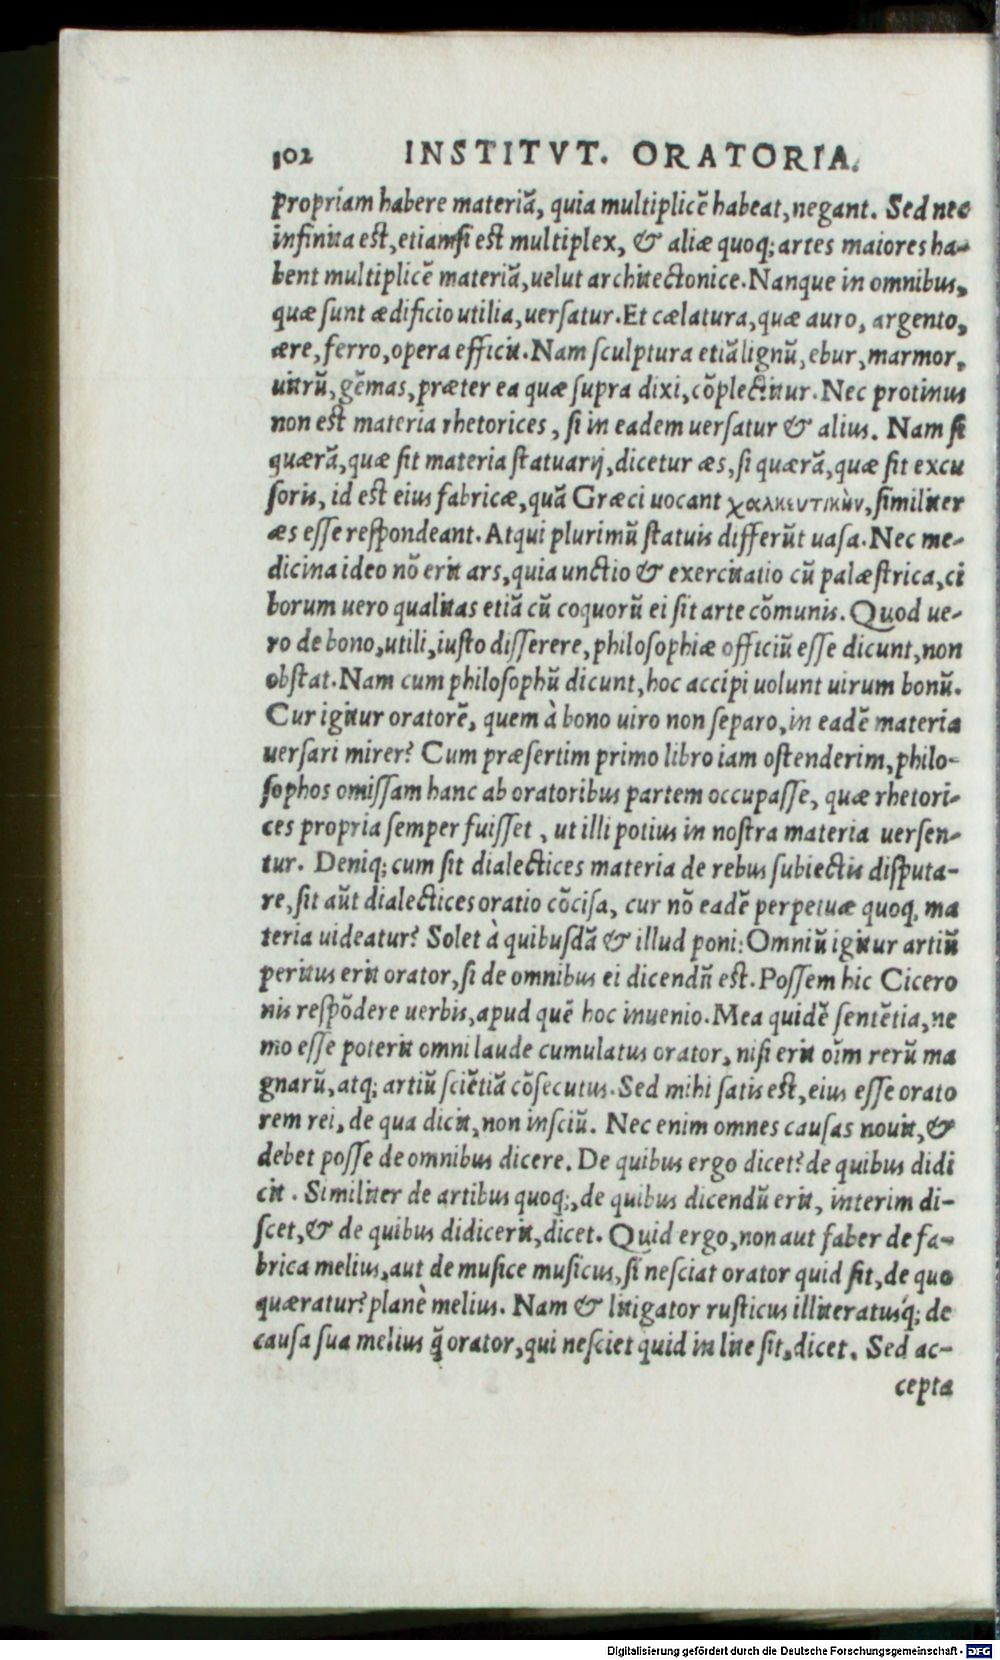 102 INSTITVT. ORATORIA.
propriam habere materiã, quia multiplicẽ habeat, negant. Sed nec
infinita est, etiamsi est multiplex, & aliæ quoq; artes maiores ha-
bent multiplicẽ materiã, uelut architectonice. Nanque in omnibus,
quæ sunt ædificio utilia, uersatur. Et cælatura, quæ auro, argento,
ære, ferro, opera efficit. Nam sculptura etiã lignũ, ebur, marmor,
uitrũ, gẽmas, præter ea quæ supra dixi, cõplectitur. Nec protinus
non est materia rhetorices, si in eadem uersatur & alius. Nam si
quærã, quæ sit materia statuarij, dicetur æs, si quærã, quæ sit excu
soris, id est eius fabricæ, quã Græci uocant χαλκευτικὴν, similiter
æs esse respondeant. Atqui plurimũ statuis differũt uasa. Nec me-
dicina ideo nõ erit ars, quia unctio & exercitatio cũ palæstrica, ci
borum uero qualitas etiã cũ coquorũ ei sit arte cõmunis. Quod ue-
ro de bono, utili, iusto disserere, philosophiæ officiũ esse dicunt, non
obstat. Nam cum philosophũ dicunt, hoc accipi uolunt uirum bonũ.
Cur igitur oratorẽ, quem à bono uiro non separo, in eadẽ materia
uersari mirer? Cum præsertim primo libro iam ostenderim, philo-
sophos omissam hanc ab oratoribus partem occupasse, quæ rhetori-
ces propria semper fuisset, ut illi potius in nostra materia uersen-
tur. Deniq; cum sit dialectices materia de rebus subiectis disputa-
re, sit aũt dialectices oratio cõcisa, cur nõ eadẽ perpetuæ quoq, ma
teria uideatur? Solet à quibusdã & illud poni: Omniũ igitur artiũ
peritus erit orator, si de omnibus ei dicendũ est. Possem hic Cicero
nis respõdere uerbis, apud quẽ hoc inuenio. Mea quidẽ sentẽtia, ne
mo esse poterit omni laude cumulatus orator, nisi erit oĩm rerũ ma
gnarũ, atq; artiũ sciẽtiã cõsecutus. Sed mihi satis est, eius esse orato
rem rei, de qua dicit, non insciũ. Nec enim omnes causas nouit, &
debet posse de omnibus dicere. De quibus ergo dicet? de quibus didi
cit. Similiter de artibus quoq;, de quibus dicendũ erit, interim di-
scet, & de quibus didicerit, dicet. Quid ergo, non aut faber de fa-
brica melius, aut de musice musicus, si nesciat orator quid sit, de quo
quæratur? planè melius. Nam & litigator rusticus illiteratusq́; de
causa sua melius q̃ orator, qui nesciet quid in lite sit, dicet. Sed ac-
cepta
Digitalisierung gefördert durch die Deutsche Forschungsgemeinschaft - DFG